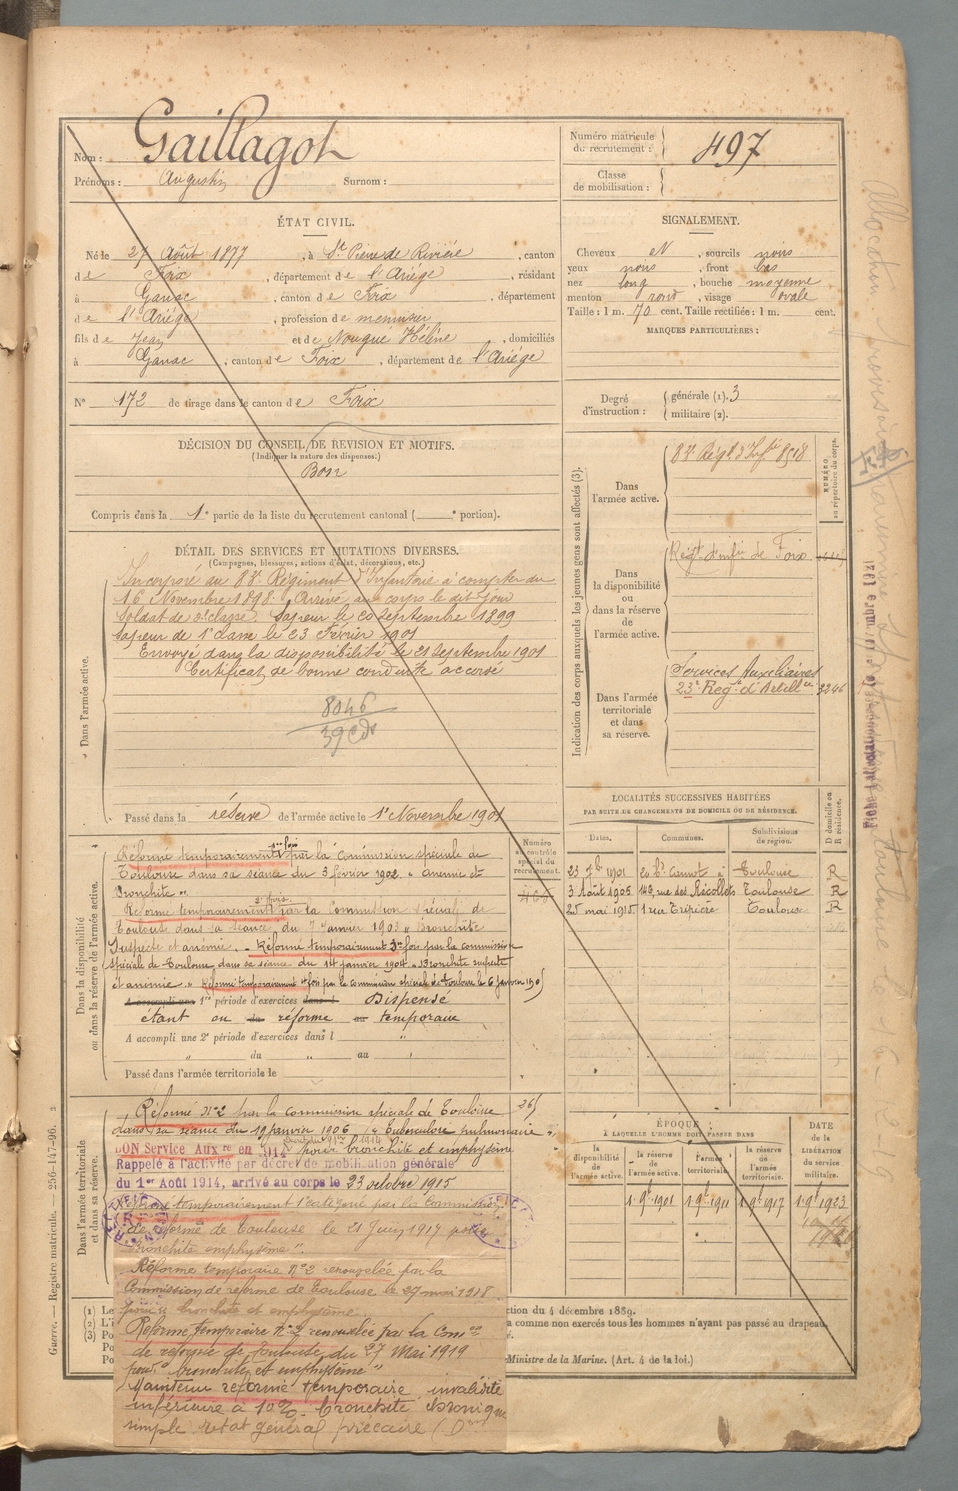 Nom : Gaillagot
Prénoms : Augustin Surnom :
Numéro matricule du recrutement : 497
Classe de mobilisation :
ÉTAT CIVIL.
Né le 27 Août 1877, à St Pierre de Rivière, canton
de Foix, département de l'Ariège, résidant
à Ganac, canton de Foix, département
de l'Ariège, profession de menuisier
fils de Jean et de Nougue Hélène, domiciliés
à Ganac, canton de Foix, département de l'Ariège
N° 172 de tirage dans le canton de Foix
SIGNALEMENT.
Cheveux et, sourcils noirs
yeux noirs, front bas
nez long, bouche moyenne
menton rond, visage ovale
Taille : 1 m. 70 cent. Taille rectifiée : 1 m. cent.
MARQUES PARTICULIÈRES :
Degré d'instruction : générale (1). 3
militaire (2).
DÉCISION DU CONSEIL DE REVISION ET MOTIFS.
(Indiquer la nature des dispenses:)
Bon
Compris dans la 1e partie de la liste du recrutement cantonal ( e portion).
DÉTAIL DES SERVICES ET MUTATIONS DIVERSES.
(Campagnes, blessures, actions d'éclat, décorations, etc.)
Dans l'armée active.
Incorporé au 83e Régiment d'Infanterie à compter du
16 Novembre 1898. Arrivé au corps le dit jour
Soldat de 2e classe. Sapeur le 20 Septembre 1899
Sapeur de 1e classe le 23 Février 1901
Envoyé dans la disponibilité le 21 Septembre 1901
Certificat de bonne conduite accordé
8046
Passé dans la réserve de l'armée active le 1er Novembre 1901
Indication des corps auxquels les jeunes gens sont affectés (3).
NUMÉRO au répertoire du corps.
Dans l'armée active.
83e Régt d'Inf ie 8518
Dans la disponibilité ou dans la réserve de l'armée active.
Régt d'infie de Foix
Dans l'armée territoriale et dans sa réserve.
Services Auxiliaires
23e Regt d'Artillie 3246
LOCALITÉS SUCCESSIVES HABITÉES
PAR SUITE DE CHANGEMENTS DE DOMICILE OU DE RÉSIDENCE.
Dates. Communes. Subdivisions de région. D domicile ou R résidence.
23 7b 1901 20 Bd Carnot à Toulouse R
3 Août 1905 149, rue des Récollets Toulouse R
25 mai 1915 1 rue Tripière Toulouse R
Dans la disponibilité ou dans la réserve de l'armée active.
Numéro au contrôle spécial du recrutement.
Réformé temporairement 1ere fois par la Commission spéciale de
Toulouse dans sa séance du 3 février 1902. " Anémie et
Bronchite ".
Réformé temporairement 2e fois par la Commission spéciale de
Toulouse dans sa séance du 7 Janvier 1903 " Bronchite
suspecte et anémie. " Réformé temporairement 3e fois par la commission
spéciale de Toulouse dans sa séance du 14 janvier 1904. " Bronchite suspecte
et anémie. " Réformé temporairement fois par la Commission spéciale de Toulouse le 6 janvier
A accompli une 1re période d'exercices dans l Dispensé
étant ou du réformé au temporaire
A accompli une 2e période d'exercices dans l
du au
Passé dans l'armée territoriale le
Dans l'armée territoriale et dans sa réserve.
Réformé N°2 par la commission spéciale de Toulouse
dans sa séance du 19 janvier 1906 " Tuberculose pulmonaire ".
BON Service Auxre en pour bronchite et emphysème
Rappelé à l'activité par décret de mobilisation générale
du 1er Août 1914, arrivé au corps le 23 octobre 1915
temporairement 1e catégorie par la Commission
de réforme de Toulouse le 21 Juin 1917 pour
" bronchite emphysème ".
Réforme temporaire N°2 renouvelée par la
Commission de réforme de Toulouse le 27 mai 1918
pour " bronchite et emphysème.
Réforme temporaire N°2 renouvelée par la Comon
de réforme de Toulouse du 27 Mai 1919
pour " bronchite et emphysème "
Maintenu réformé temporaire, invalidité
inférieure à 10%. bronchite chronique
simple état général précaire
ÉPOQUE
À LAQUELLE L'HOMME DOIT PASSER DANS
la disponibilité de l'armée active. la réserve de l'armée active. l'armée territoriale. la réserve de l'armée territoriale.
DATE de la LIBÉRATION du service militaire.
1 9b 1901 1 9b 1911 1 9b 1917 1 9b 1923
(1) Le
(2)
(3) Po
ction du 4 décembre 1889.
a comme non exercés tous les hommes n'ayant pas passé au drapeau.
Ministre de la Marine. (Art. 4 de la loi.)
Guerre. — Registre matricule. — 256-147-96. 2